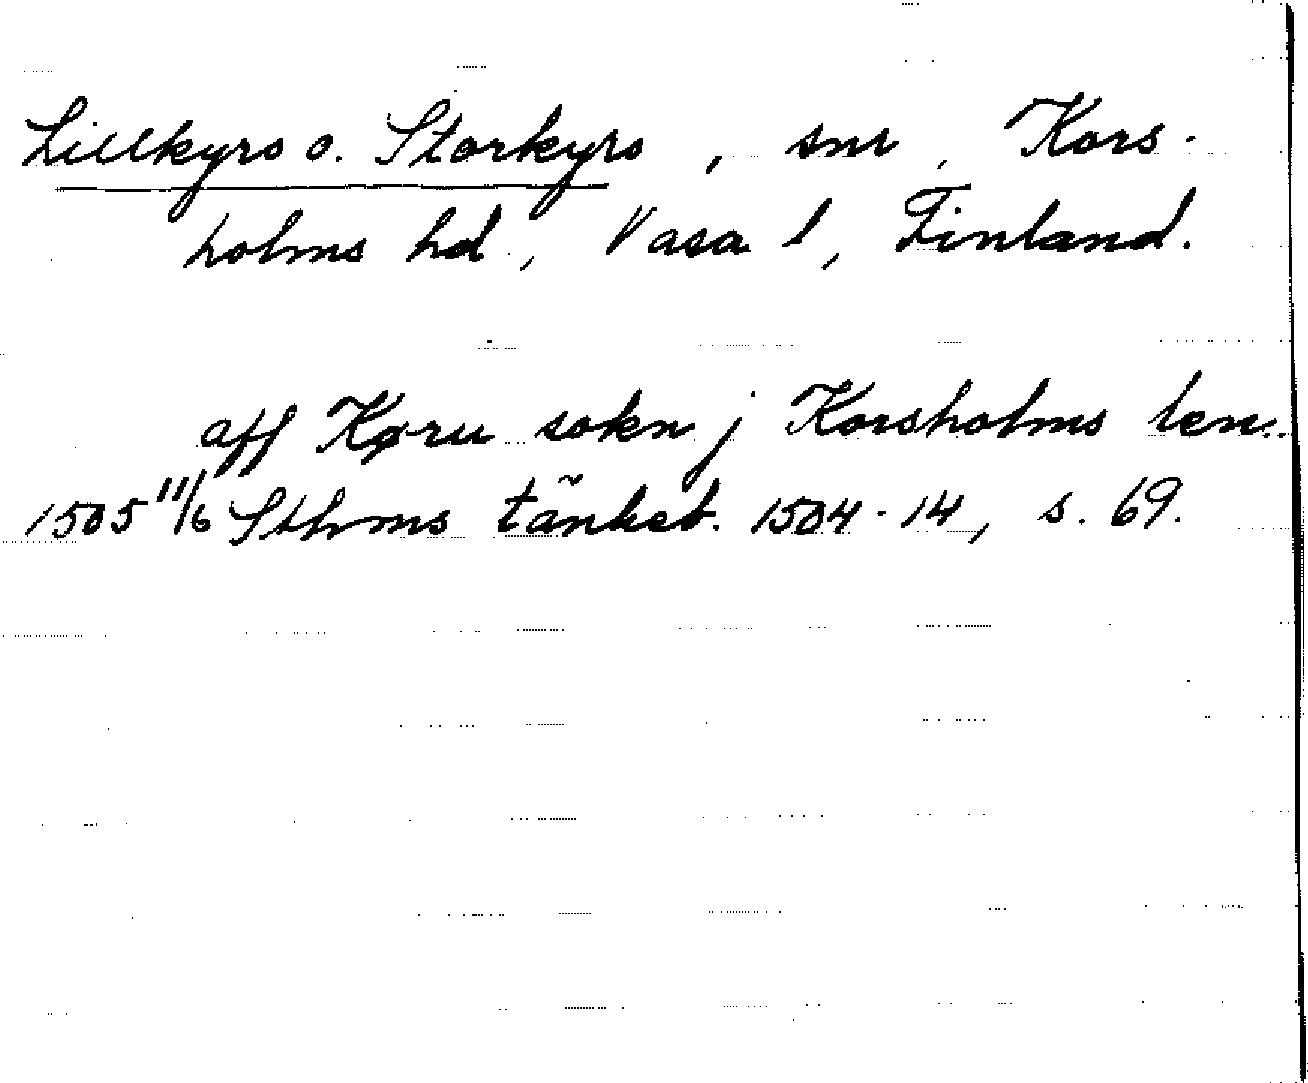 Lillkyro o. Storkyro, snr, Kors-
holms hd, Vasa l, Finland.
aff Køru sokn j Korsholms len.
1505 11/6 Sthms tänkeb. 1504-14, s. 69.